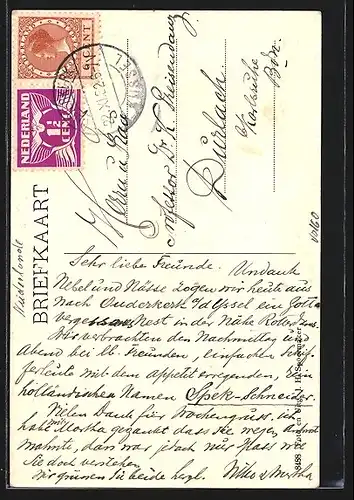 NEDERLAND
1½
CENT
6 CENT
IJSSEL
BRIEFKAART
Niederlande
Herrn u. Frau
Professor Dr. K. Preisendanz
Durlach
b/Karlsruhe
Bdn.
Vo160
Sehr liebe Freunde. Undank
Nebel und Nässe zogen wir heute aus
nach Ouderkerk a/d Yssel ein Gott
vergessenes Nest in der Nähe Rotterdams.
Wir verbrachten den Nachmittag und
Abend bei lb. Freunden, einfachen Schif-
fersleute mit dem appetiterregenden, rein
holländischen Namen Spek-Schneider.
Vielen Dank für Wochengruss. Ich
hatte Martha gezankt dass Sie wegen Antwort
mahnte, das war jedoch nur Spass wie
Sie doch verstehen.
Wir grüssen Sie beide herzl. Willes & Martha
8488 Foto en Uitgave H. Spanjer